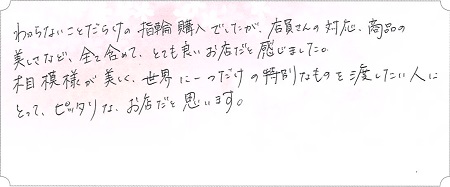 わからないことだらけの指輪購入でしたが、店員さんの対応、商品の
美しさなど、全て含めて、とても良いお店だと感じました。
相模様が美しく、世界に一つだけの特別なものを渡したい人に
とって、ピッタリな、お店だと思います。